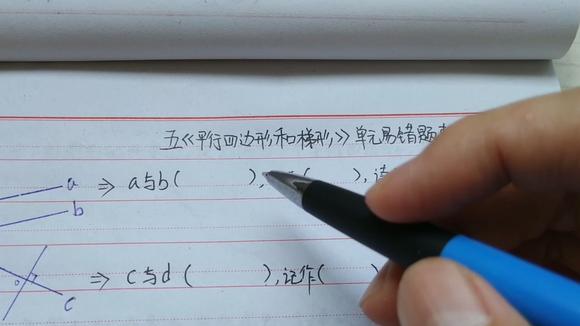 五《平行四边形和梯形》单元易错题
a ⇒ a与b(    ),    (    ),读
b
c与d (    ),记作(    )
c